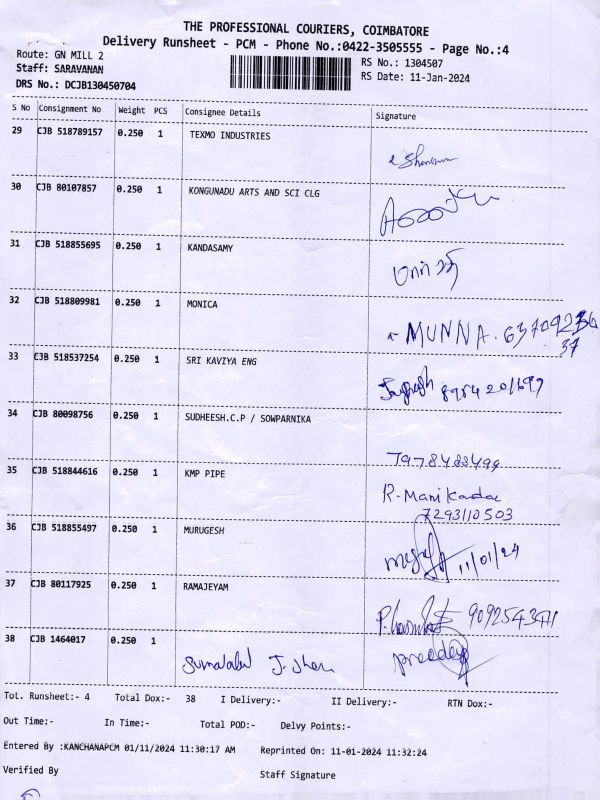 THE PROFESSIONAL COURIERS, COIMBATORE
Delivery Runsheet - PCM - Phone No.:0422-3505555 - Page No.:4
Route: GN MILL 2
RS No.: 1304507
Staff: SARAVANAN
RS Date: 11-Jan-2024
DRS No.: DCJB130450704
S No Consignment No Weight PCS Consignee Details Signature
29 CJB 518789157 0.250 1 TEXMO INDUSTRIES
30 CJB 80107857 0.250 1 KONGUNADU ARTS AND SCI CLG
31 CJB 518855695 0.250 1 KANDASAMY
32 CJB 518809981 0.250 1 MONICA
MUNNA.
37
33 CJB 518537254 0.250 1 SRI KAVIYA ENG
34 CJB 80098756 0.250 1 SUDHEESH.C.P / SOWPARNIKA
35 CJB 518844616 0.250 1 KMP PIPE
7293110503
36 CJB 518855497 0.250 1 MURUGESH
11/01/24
37 CJB 80117925 0.250 1 RAMAJEYAM
38 CJB 1464017 0.250 1
Tot. Runsheet:- 4 Total Dox:- 38 I Delivery:- II Delivery:- RTN Dox:-
Out Time:- In Time:- Total POD:- Delvy Points:-
Entered By :KANCHANAPCM 01/11/2024 11:30:17 AM Reprinted On: 11-01-2024 11:32:24
Verified By
Staff Signature